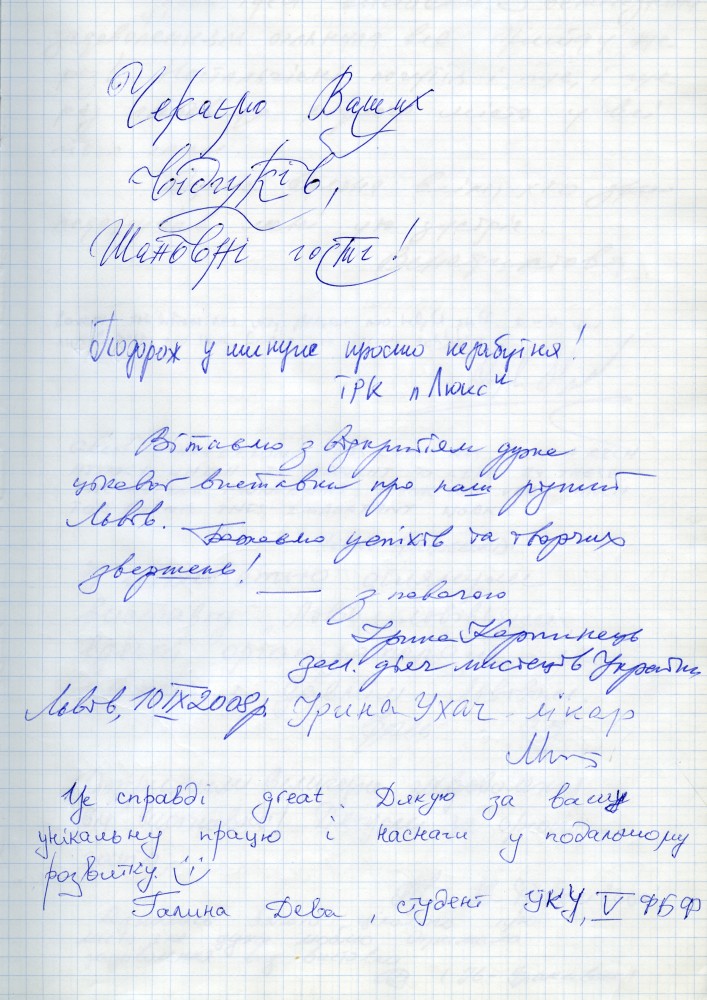 Чекаємо Ваших
відгуків,
Шановні гості!
Подорож у минуле просто незабутня!
ТРК „Люкс“
Вітаємо з відкриттям дуже
цікавої виставки про наш рідний
Львів. Бажаємо успіхів та творчих
звершень! —
з повагою
Ірина Карпинець
засл. діяч мистецтв України
Львів, 10 IX 2008р. Ірина Ухач - лікар
Це справді great. Дякую за вашу
унікальну працю і наснаги у подальшому
розвитку. :)
Галина Дева, студент УКУ, V ФБФ